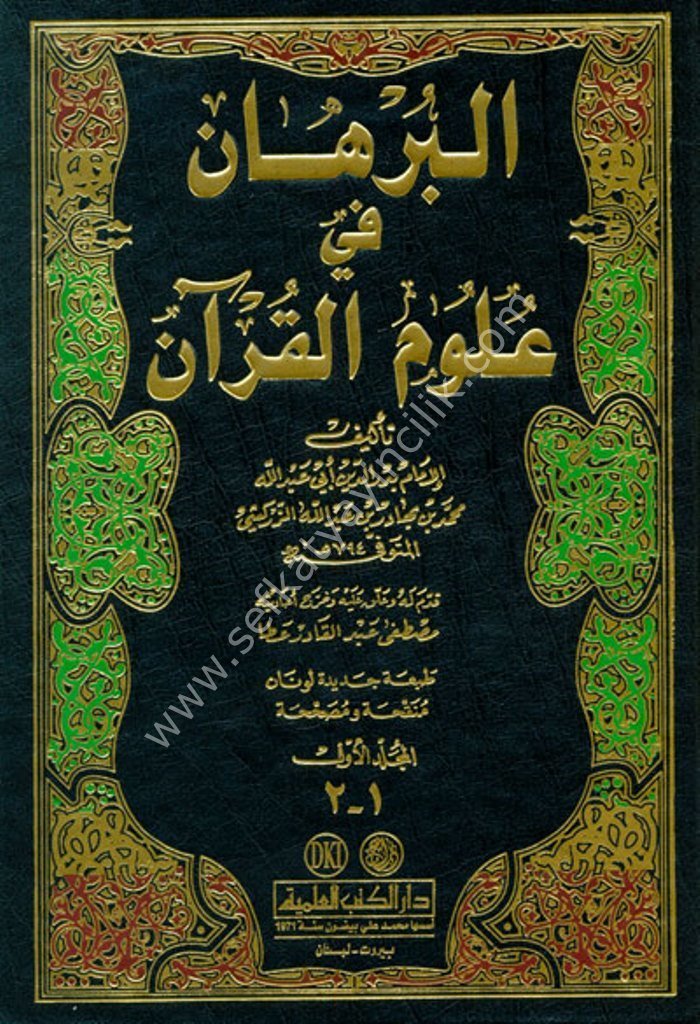 البُرْهَان
في
عُلُوم القُرْآن
تأليف
الإمام بدر الدين أبي عبد الله
محمد بن بهادر بن عبد الله الزركشي
المتوفى ٧٩٤ هـ
قدم له وعلق عليه وخرج أحاديثه
مصطفى عبد القادر عطا
طبعة جديدة لونان
منقحة ومصححة
المجلد الأول
١-٢
DKI
دار الكتب العلمية
أسسها محمد علي بيضون سنة 1971
بيروت - لبنان
www.sefkatyayincilik.com